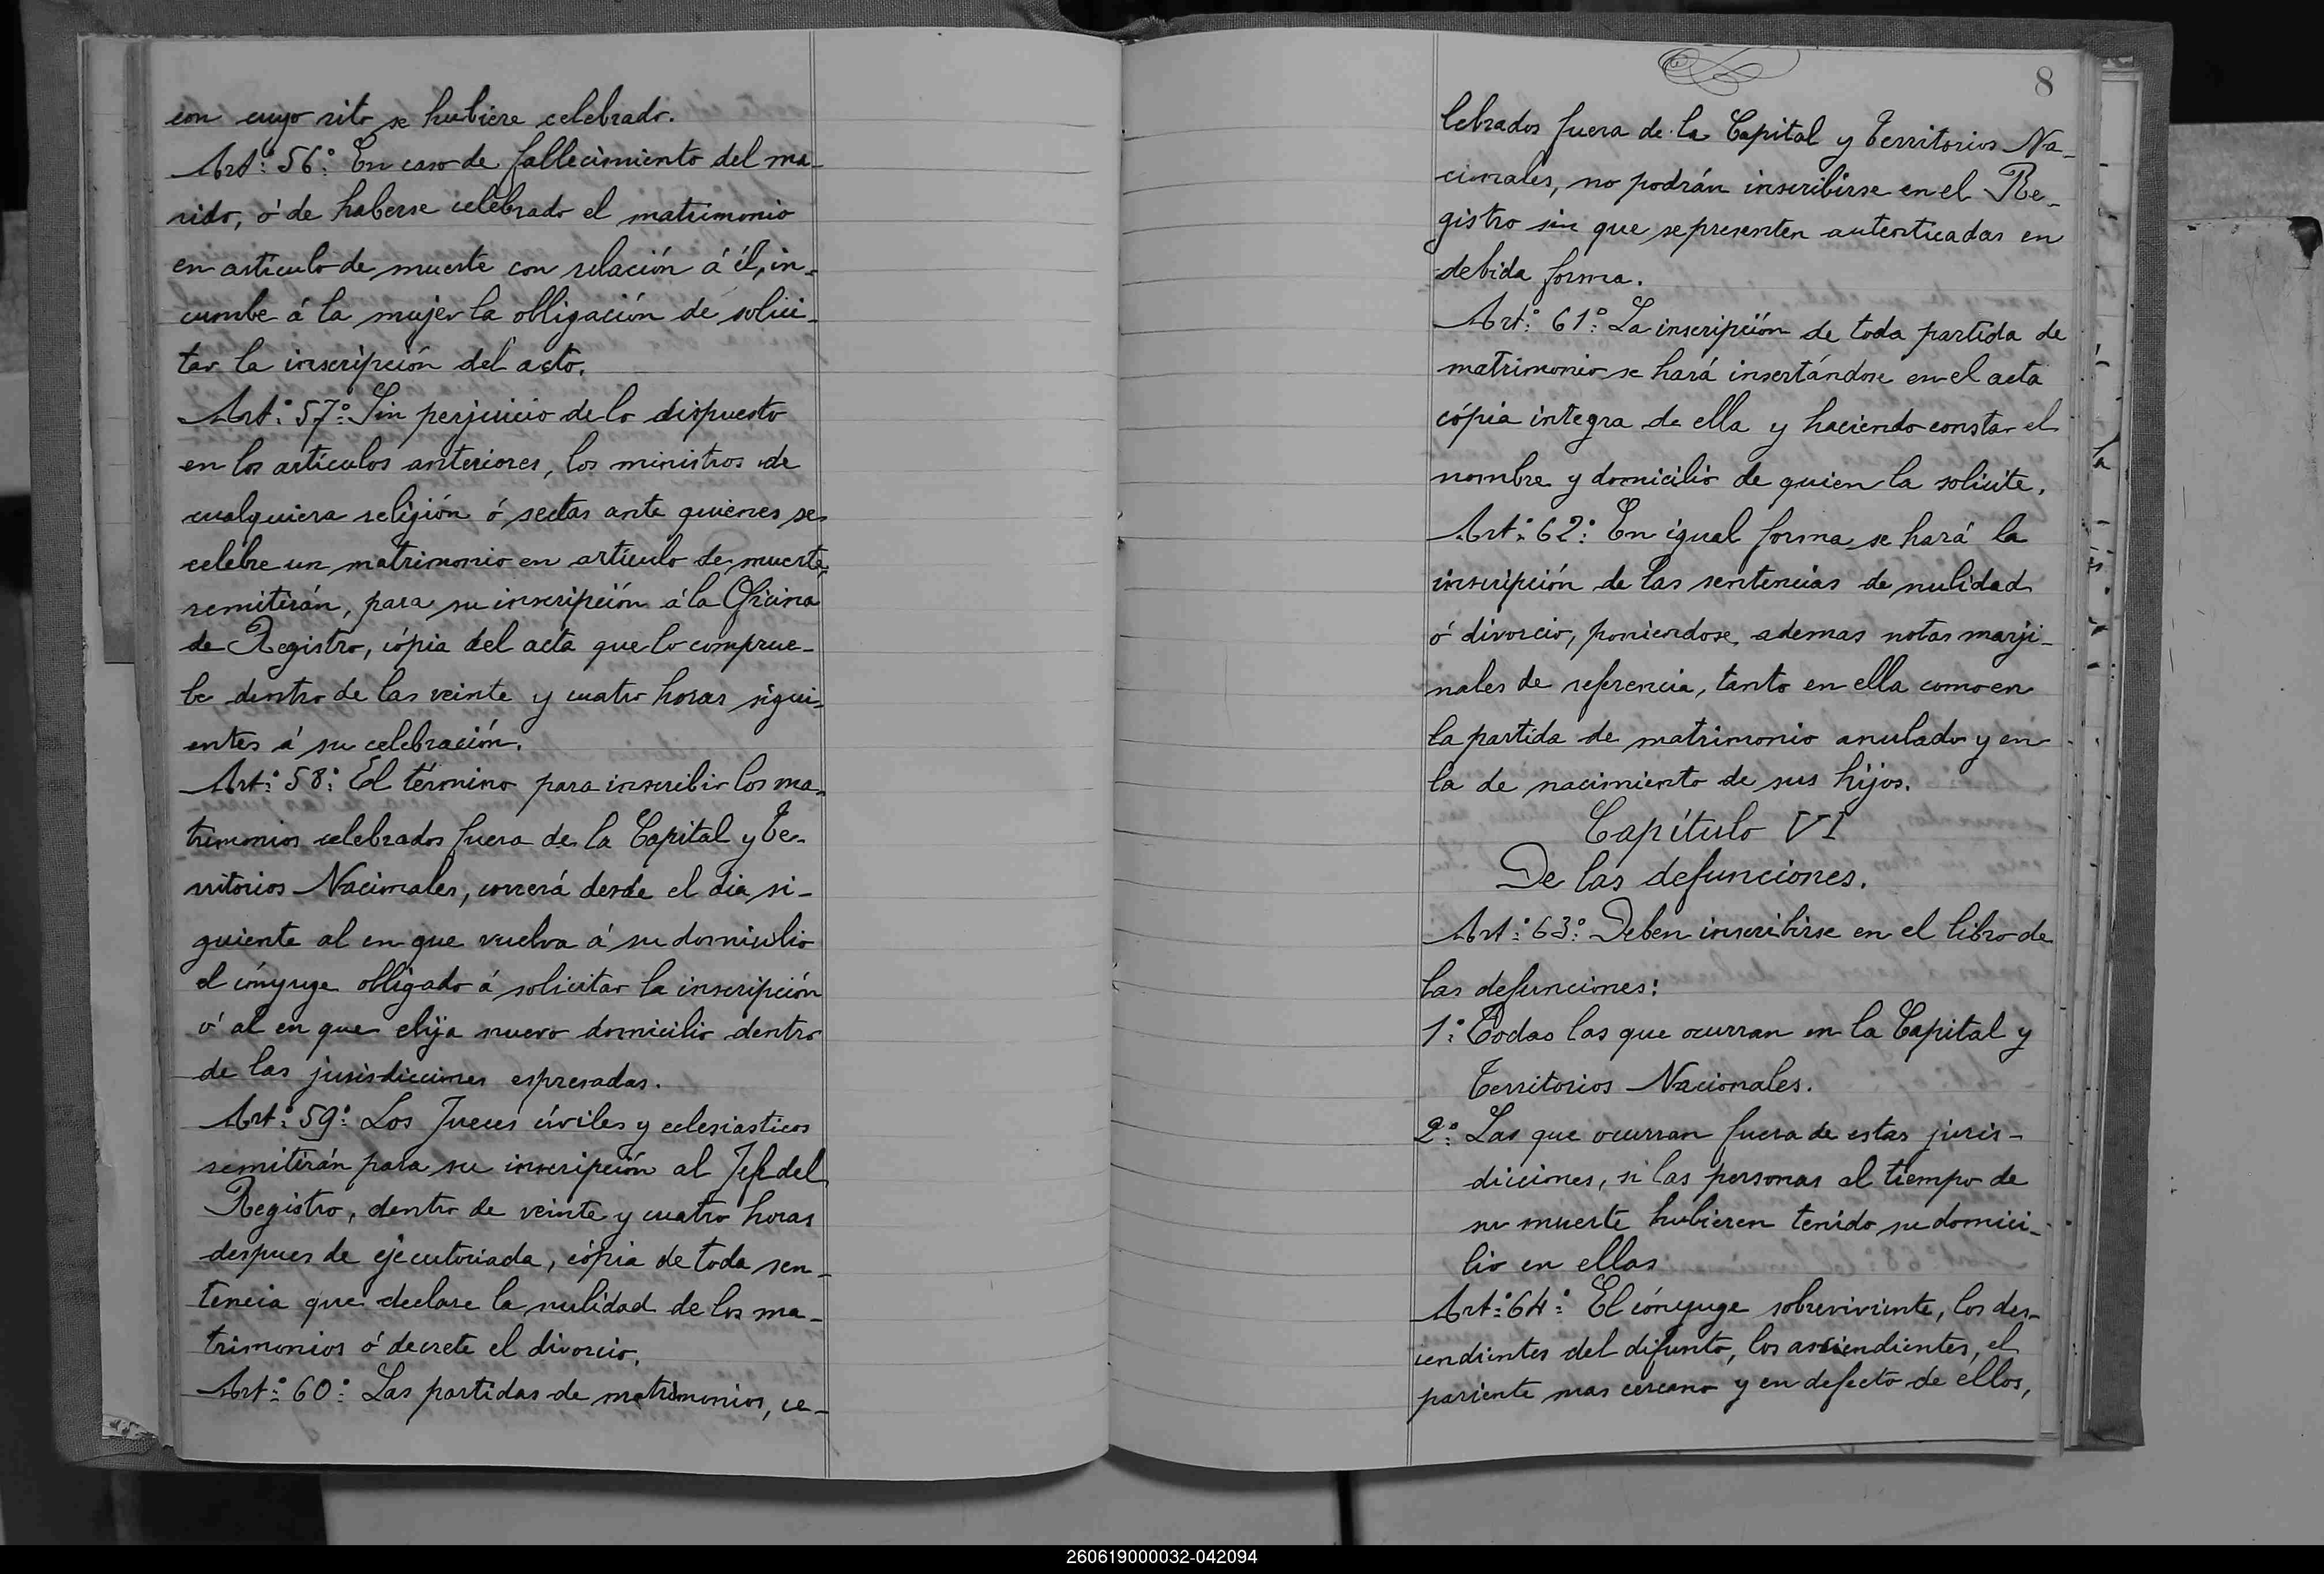 con cuyo rito se hubiere celebrado.
Art.º 56.º En caso de fallecimiento del ma-
rido, ó de haberse celebrado el matrimonio
en artículo de muerte con relación á él, in-
cumbe á la mujer la obligación de solici-
tar la inscripción del acto.
Art.º 57.º Sin perjuicio de lo dispuesto
en los artículos anteriores, los ministros de
cualquiera religión ó sectas ante quienes se
celebre un matrimonio en artículo de muerte,
remitirán, para su inscripción á la Oficina
de Registro, cópia del acta que lo comprue-
be dentro de las veinte y cuatro horas sigui-
entes á su celebración.
Art.º 58.º El término para inscribir los ma-
trimonios celebrados fuera de la Capital y Te-
rritorios Nacionales, correrá desde el dia si-
guiente al en que vuelva á su domicilio
el cónyuge obligado á solicitar la inscripción
ó al en que elija nuevo domicilio dentro
de las jurisdicciones espresadas.
Art.º 59.º Los Jueces civiles y eclesiasticos
remitirán para su inscripción al Jefe del
Registro, dentro de veinte y cuatro horas
despues de ejecutoriada, cópia de toda sen-
tencia que declare la nulidad de los ma-
trimonios ó decrete el divorcio.
Art.º 60.º Las partidas de matrimonios, ce-
8
lebrados fuera de la Capital y Territorios Na-
cionales, no podrán inscribirse en el Re-
gistro sin que se presenten autenticadas en
debida forma.
Art.º 61.º La inscripción de toda partida de
matrimonio se hará insertándose en el acta
cópia integra de ella y haciendo constar el
nombre y domicilio de quien la solicite.
Art.º 62.º En igual forma se hará la
inscripción de las sentencias de nulidad
ó divorcio, poniendose ademas notas marji-
nales de referencia, tanto en ella como en
la partida de matrimonio anulado y en
la de nacimiento de sus hijos.
Capítulo VI
De las defunciones.
Art.º 63.º Deben inscribirse en el libro de
las defunciones:
1.º Todas las que ocurran en la Capital y
Territorios Nacionales.
2.º Las que ocurran fuera de estas juris-
diciones, si las personas al tiempo de
su muerte hubieren tenido su domici-
lio en ellas
Art.º 64.º El cónyuge sobreviviente, los des-
cendientes del difunto, los asciendientes, el
pariente mas cercano y en defecto de ellos,
260619000032-042094